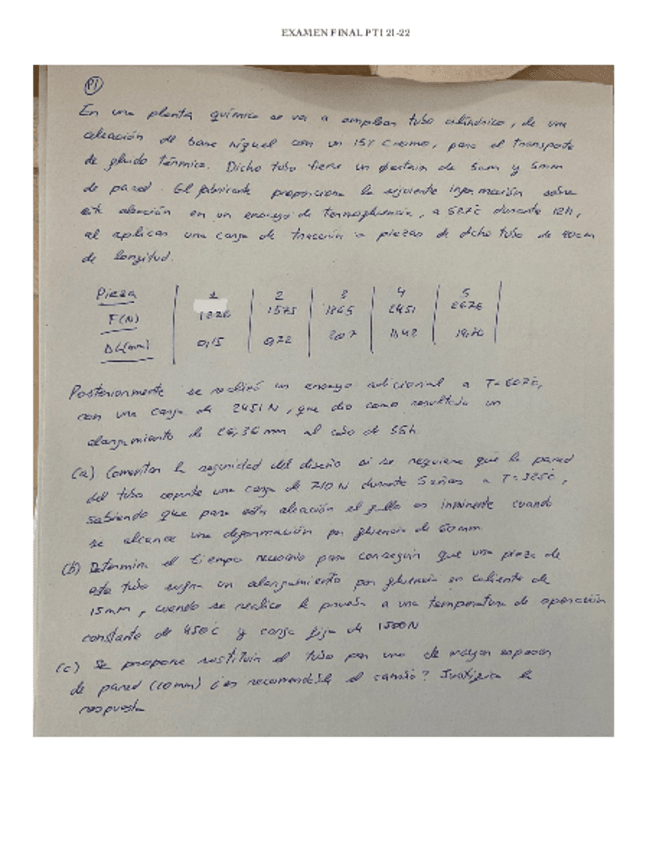 EXAMEN FINAL PTI 21-22
P1
En una planta química se va a emplear tubo cilíndrico, de una
aleación de base níquel con un 15% Cromo, para el transporte
de fluido térmico. Dicho tubo tiene un de 5cm y 5mm
de pared. El fabricante proporciona la siguiente información sobre
esta aleación en un ensayo de termofluencia, a 527ºC durante 12h,
al aplicar una carga de tracción a piezas de dicho tubo de cm
de longitud.
Pieza 1 2 3 4 5
F(N) 1575 1865 2451
ΔL(mm) 0,15 0,72 2,07 11,42
Posteriormente se realizó un ensayo adicional a T=607ºC,
con una carga de 2451N, que dio como resultado un
alargamiento de 26,36mm al cabo de 55h
(a) Comentar la seguridad del diseño si se requiere que la pared
del tubo soporte una carga de 710N durante 5 años a T=325ºC,
sabiendo que para esta aleación el fallo es inminente cuando
se alcance una deformación por fluencia de 60mm
(b) Determina el tiempo necesario para conseguir que una pieza de
este tubo sufra un alargamiento por fluencia en caliente de
15mm, cuando se realice la prueba a una temperatura de operación
constante de 450ºC y carga fija de 1500N
(c) Se propone sustituir el tubo por uno de mayor espesor
de pared (10mm) ¿es recomendable el cambio? Justifica la
respuesta